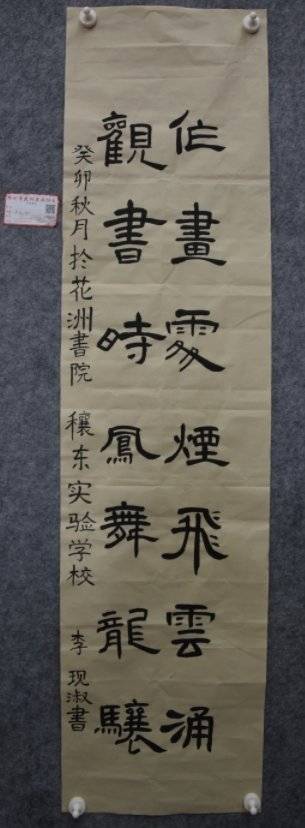 作畫處煙飛雲涌
觀書時鳳舞龍驤
癸卯秋月於花洲書院 穰东实验学校 李现淑書